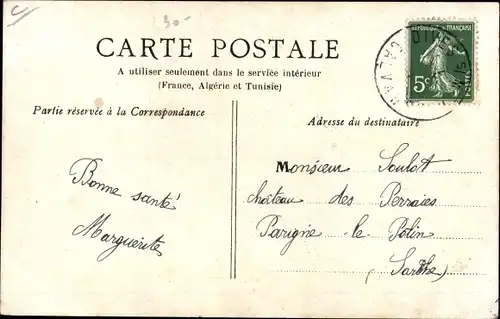 30-
CARTE POSTALE
A utiliser seulement dans le service intérieur
(France, Algérie et Tunisie)
Partie réservée à la Correspondance
Adresse du destinataire
RÉPUBLIQUE FRANÇAISE
5c
POSTES
Bonne santé
Marguerite
Monsieur Soulot
château des Perraies
Parigné le Polin
(Sarthe)